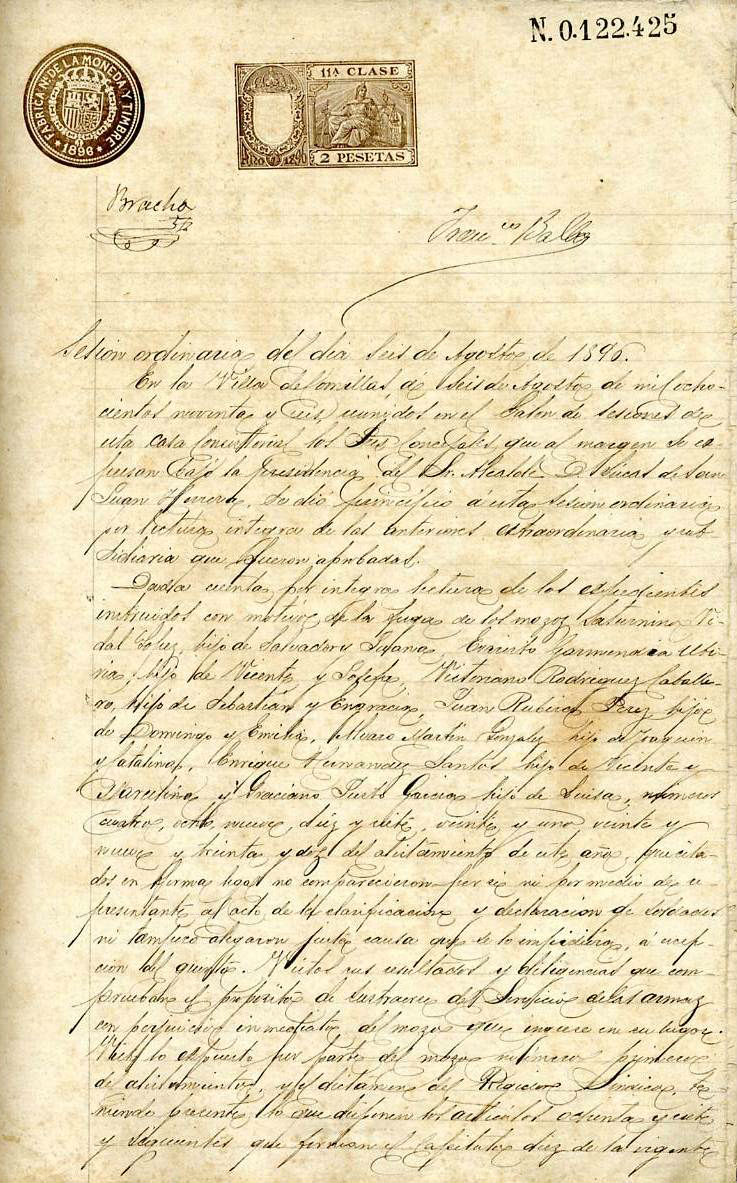 N. 0.122.425
FABRICA Nl. DE LA MONEDA Y TIMBRE
* 1896 *
11ª CLASE
AÑO 1896
2 PESETAS
Bracho
Sesion ordinaria del dia seis de Agosto de 1896.
En la Villa de Ornillas, a seis de Agosto de mil ocho-
cientos noventa y seis, reunidos en el Salon de sesiones de
esta casa Consistorial los Sres Concejales que al margen se es-
presan bajo la presidencia del Sr. Alcalde D. Lucas de San
Juan Herrero, se dió principio á esta sesion ordinaria
por lectura integra de las anteriores estraordinaria y sub-
sidiaria que fueron aprobadas.
Dada cuenta por integra lectura de los espedientes
instruidos con motivo de la fuga de los mozos Saturnino Vi-
dal hijo de Salvador y Susana, Evaristo Garmendia Ubi-
ria, hijo de Vicente y Josefa, Victoriano Rodriguez Caballe-
ro, hijo de Sebastian y Engracia, Juan Rubira Perez hijo
de Domingo y Emilia, Alvaro Martin Gonzalez hijo de Joaquin
y Catalina, Enrique Hernandez Santos hijo de Vicente y
y Graciano Justo Garcia hijo de Luisa, números
cuatro, ocho, nueve, diez y siete, veinte y uno, veinte y
nueve y treinta y dos del alistamiento de este año, que cita-
dos en forma legal no comparecieron por si ni por medio de re-
presentante al acto de la clasificacion y declaracion de soldados
ni tampoco alegaron justa causa que se lo impidiera, á escep-
cion del quinto. Vistos sus resultados y diligencias que com-
prueban el proposito de sustraerse del Servicio de las armas
con perjuicio inmediato del mozo que ingrese en su lugar.
Visto lo espuesto por parte del mozo número primero
del alistamiento, y el dictamen del Regidor Sindico, te-
niendo presente lo que disponen los articulos ochenta y siete
y siguientes que forman el Capitulo diez de la vigente